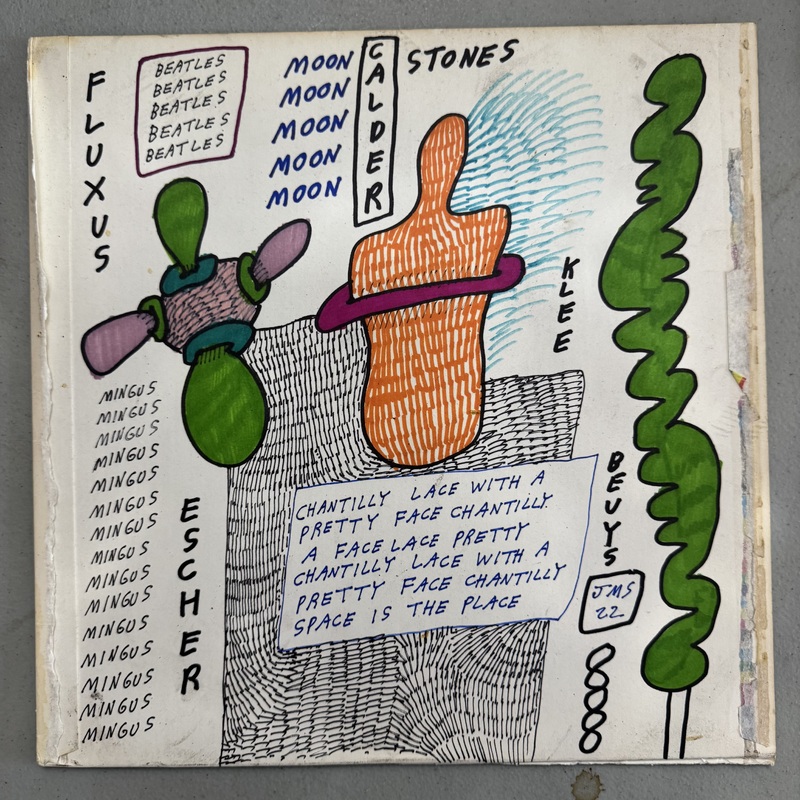 FLUXUS
BEATLES
BEATLES
BEATLES
BEATLES
BEATLES
MOON
MOON
MOON
MOON
MOON
CALDER
STONES
KLEE
MINGUS
MINGUS
MINGUS
MINGUS
MINGUS
MINGUS
MINGUS
MINGUS
MINGUS
MINGUS
MINGUS
MINGUS
MINGUS
MINGUS
MINGUS
ESCHER
CHANTILLY LACE WITH A
PRETTY FACE CHANTILLY
A FACE LACE PRETTY
CHANTILLY LACE WITH A
PRETTY FACE CHANTILLY
SPACE IS THE PLACE
BEUYS
JMS
22